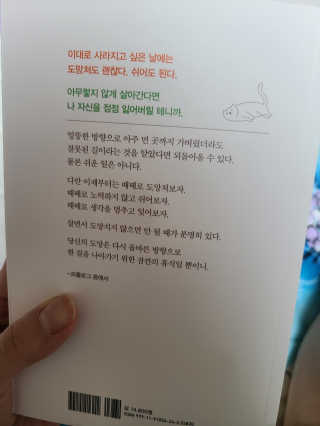 이대로 사라지고 싶은 날에는
도망쳐도 괜찮다. 쉬어도 된다.
아무렇지 않게 살아간다면
나 자신을 점점 잃어버릴 테니까.
엉뚱한 방향으로 아주 먼 곳까지 가버렸더라도
잘못된 길이라는 것을 알았다면 되돌아올 수 있다.
물론 쉬운 일은 아니다.
다만 이제부터는 때때로 도망쳐보자.
때때로 노력하지 않고 쉬어보자.
때때로 생각을 멈추고 잊어보자.
살면서 도망치지 않으면 안 될 때가 분명히 있다.
당신의 도망은 다시 올바른 방향으로
한 걸음 나아가기 위한 잠깐의 휴식일 뿐이니.
-프롤로그 중에서